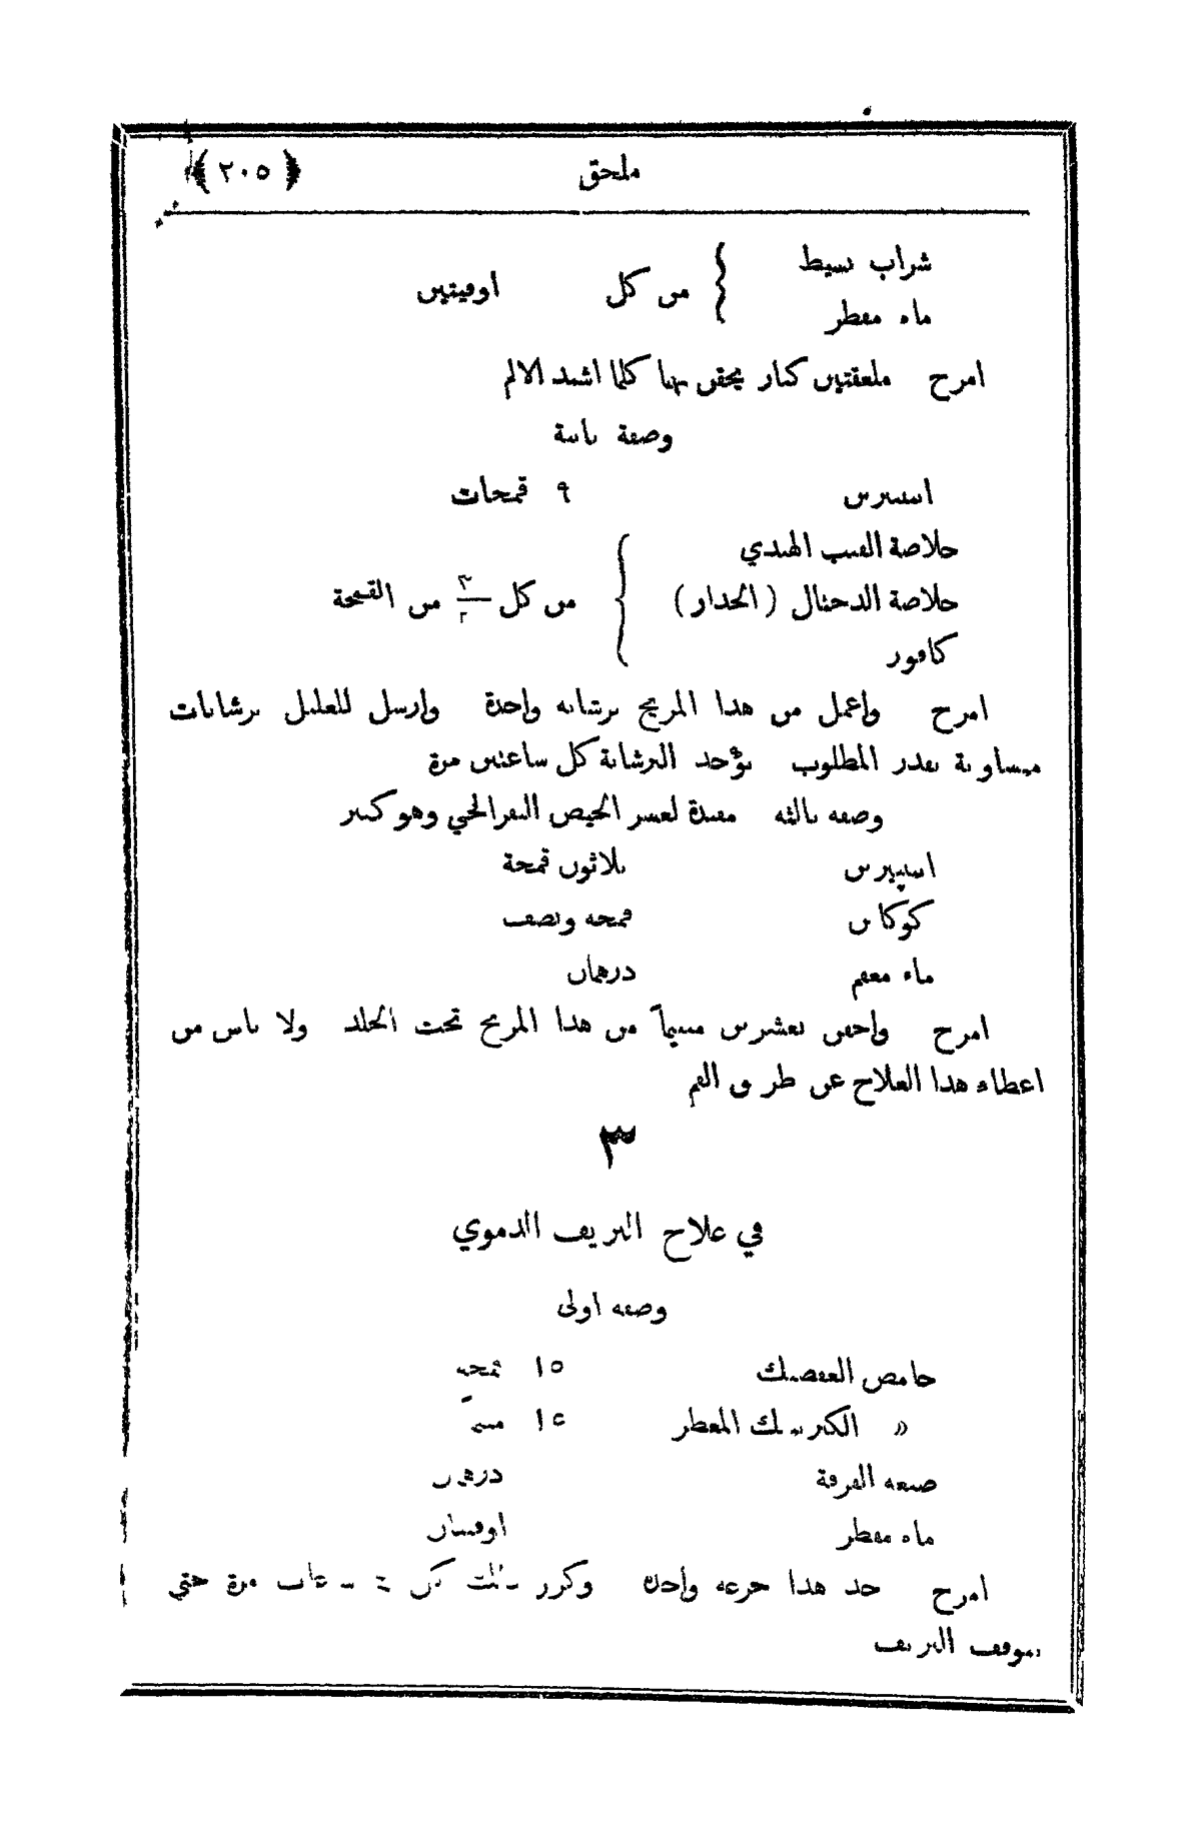 ملحق ﴿ ٢٠٥ ﴾
شراب بسيط
ماء مقطر } من كل اوقيتين
امزج ملعقتين كبار يحقن بهما كلما اشتد الالم
وصفة ثانية
اسبيرين ٩ قمحات
خلاصة القنب الهندي
خلاصة الدجنال (الجدار) } من كل ٣/٢ من القمحة
كافور
امزج واعمل من هذا المزيج برشانه واحدة وارسل للعليل برشانات
متساوية بقدر المطلوب تؤخذ البرشانة كل ساعتين مرة
وصفه ثالثه مفيدة لعسر الحيض النفرالجي وهو كبير
اسبيرين ثلاثون قمحة
كوكاين قمحه ونصف
ماء معقم درهمان
امزج واحقن بعشرين سنتيمآ من هذا المزيج تحت الجلد ولا باس من
اعطاء هذا العلاج عن طريق الفم
٣
في علاج النزيف الدموي
وصفه اولى
حامض العفصيك ١٥ قمحه
« الكبريتيك المعطر ١٥
صبغه القرفة درهمان
ماء مقطر اوقيتان
امزج خذ هذا جرعه واحدة وكرر ذلك كل ساعات مرة حتى
يتوقف النزيف